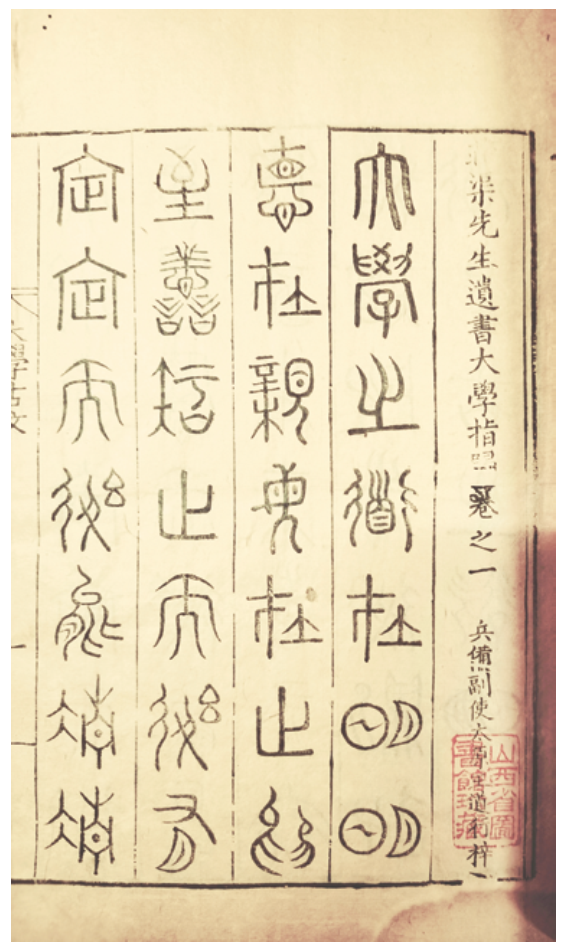 渠先生遺書大學指歸卷之一
兵備副使太原王道行梓
大學之道在明明
悳在親民在止於
至善知止而後有
定定而後能靜靜
大學古文
山西省圖書館珍藏